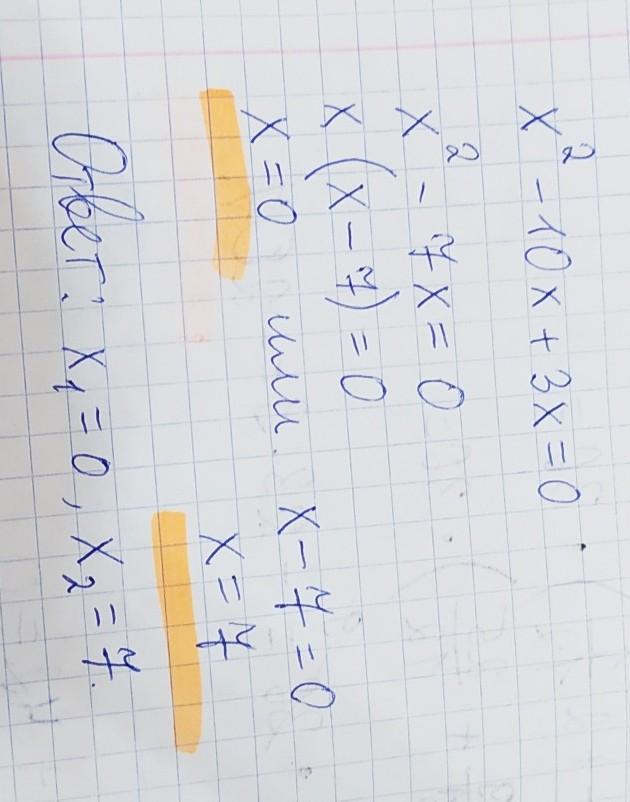 x² - 10x + 3x = 0
x² - 7x = 0
x(x - 7) = 0
x = 0 или x - 7 = 0
x = 7
Ответ: x₁ = 0, x₂ = 7.